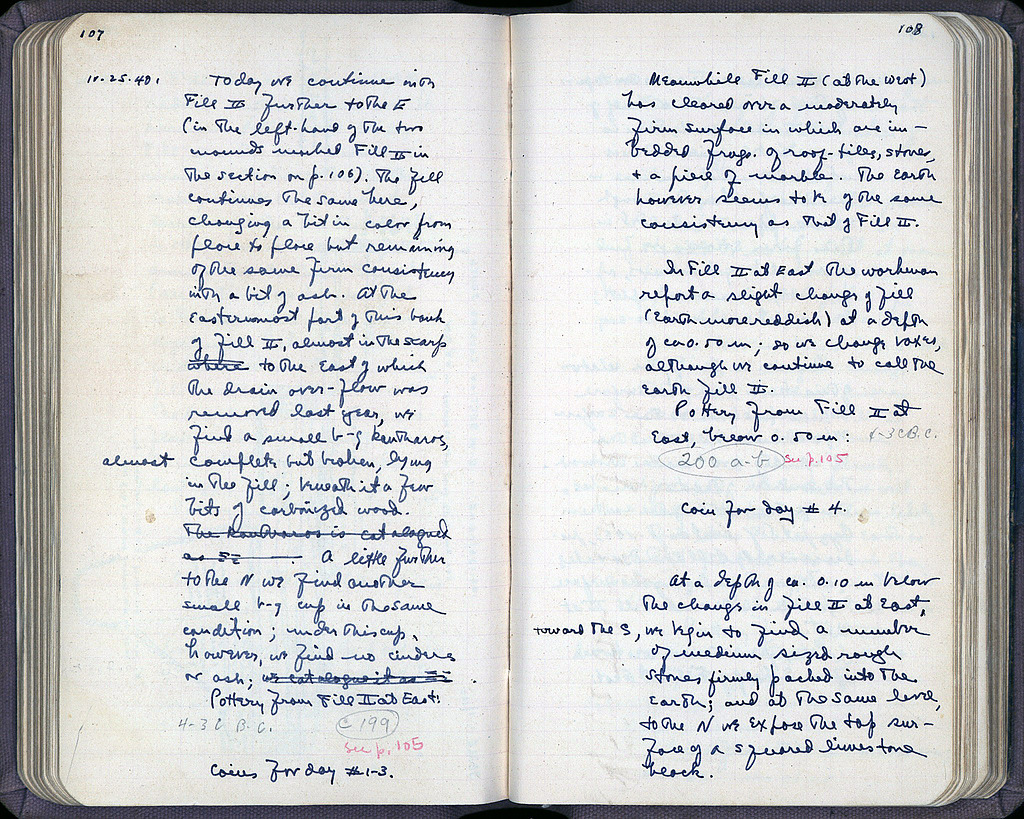 107
10.25.401 Today we continue with
Fill II further to the E
(in the left-hand of the two
mounds marked Fill II in
the section on p. 106). The fill
continues the same here,
changing a bit in color from
place to place but remaining
of the same firm consistency
with a bit of ash. At the
easternmost part of this bank
of fill II, almost in the scarp
where to the East of which
the drain over-flow was
removed last year, we
find a small b-g kantharos,
almost complete but broken, lying
in the fill; beneath it a few
bits of carbonized wood.
The kantharos is catalogued
as ΣΣ . A little further
to the N we find another
small b-g cup in the same
condition; under this cup,
however, we find no cinders
or ash; we catalogue it as ΣΣ
Pottery from Fill II at East:
4-3 C B.C. C 199
See p. 105
Coins for day #1-3.
108
Meanwhile Fill II (at the west)
has cleared over a moderately
firm surface in which are im-
bedded frags. of roof-tiles, stones,
+ a piece of marble. The earth
however seems to be of the same
consistency as that of Fill II.
In Fill II at East the workmen
report a slight change of fill
(earth more reddish) at a depth
of ca 0.50 m; so we change boxes,
although we continue to call the
earth fill II.
Pottery from Fill II at
East, below 0.50 m: 4-3 C B.C.
200 a-b See p. 105
Coin for day #4.
At a depth of ca. 0.10 m below
the change in fill II at East,
toward the S, we begin to find a number
of medium sized rough
stones firmly packed into the
earth; and at the same level,
to the N we expose the top sur-
face of a squared limestone
block.